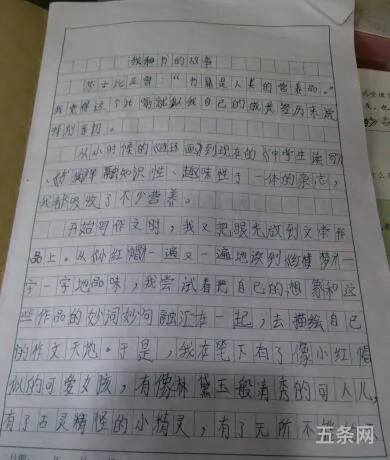 我和书的故事
莎士比亚曾："书籍是人类的营养品。"
我觉得这个比喻就拟我自己的成长经历来说
特别亲切。
从小时候的《连环画》到现在的《中学生读写》
、融知识性、趣味性于一体的杂志，
我都吸收了不少营养。
开始写作文时，我又把眼光放到文学作
品上。从《小红帽》一遍又一遍地读到《红楼梦》
字一字地品味，我尝试着把自己的想象和这
些作品的妙词妙句融汇在一起，去描绘自己
的作文天地。于是，我在笔下有了像小红帽
似的可爱女孩，有像林黛玉般清秀的可人儿，
有了古灵精怪的小精灵，有了无所不
五条网